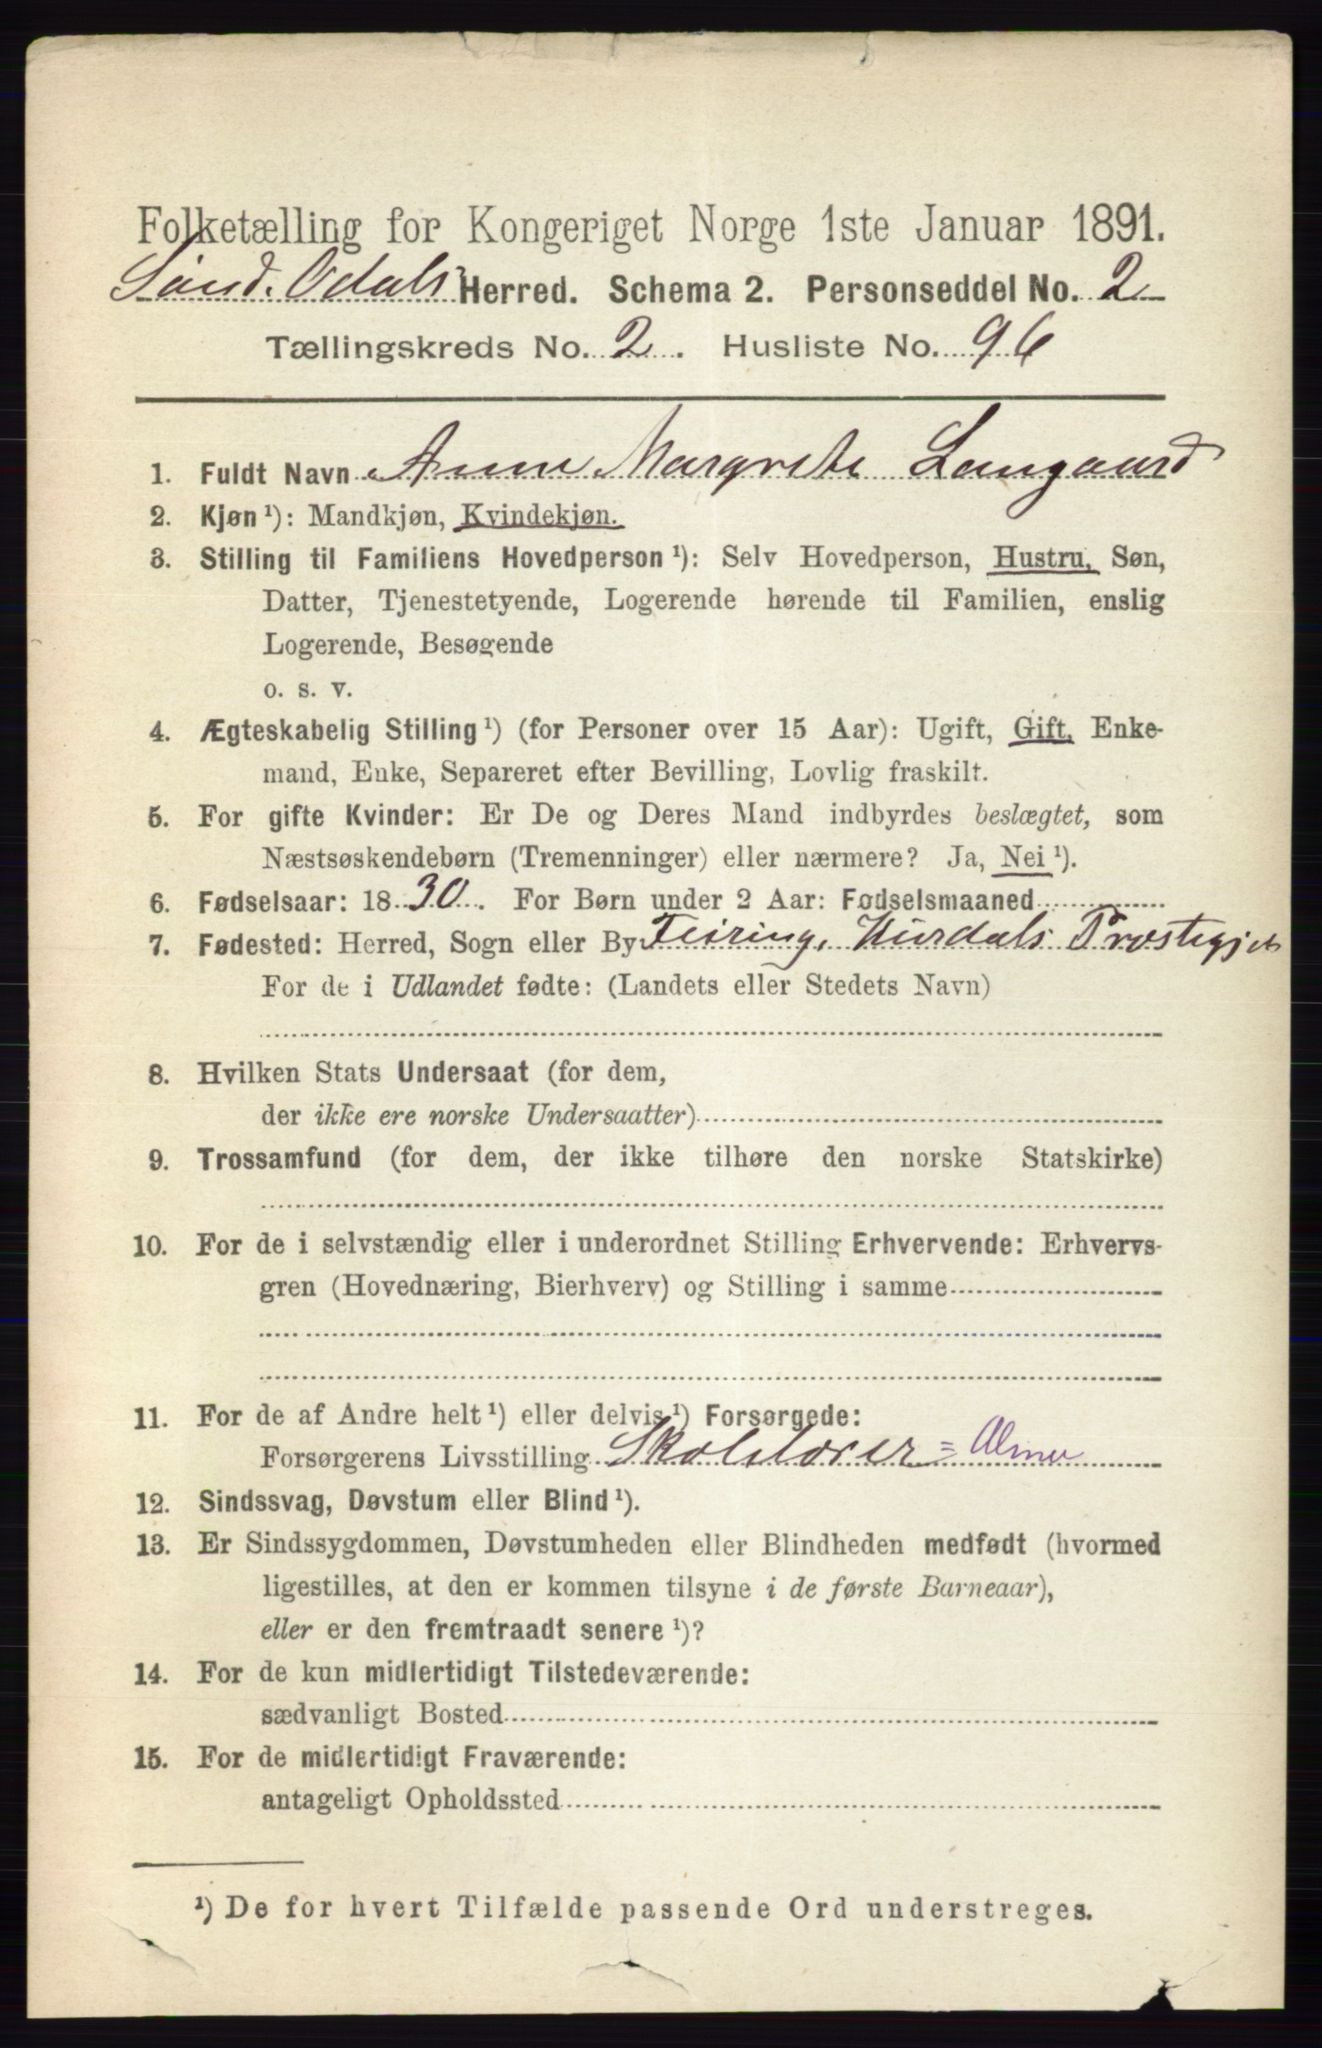 Folketælling for Kongeriget Norge 1ste Januar 1891.
Sønd. Odals Herred. Schema 2. Personseddel No. 2
Tællingskreds No. 2. Husliste No. 96
1. Fuldt Navn Anne Margrete Langaard
2. Kjøn ¹): Mandkjøn, Kvindekjøn.
3. Stilling til Familiens Hovedperson ¹): Selv Hovedperson, Hustru, Søn,
Datter, Tjenestetyende, Logerende hørende til Familien, enslig
Logerende, Besøgende
o. s. v.
4. Ægteskabelig Stilling ¹) (for Personer over 15 Aar): Ugift, Gift, Enke-
mand, Enke, Separeret efter Bevilling, Lovlig fraskilt.
5. For gifte Kvinder: Er De og Deres Mand indbyrdes beslægtet, som
Næstsøskendebørn (Tremenninger) eller nærmere? Ja, Nei ¹).
6. Fødselsaar: 1830. For Børn under 2 Aar: Fødselsmaaned
7. Fødested: Herred, Sogn eller By Feiring, Hurdals Præstegjeld
For de i Udlandet fødte: (Landets eller Stedets Navn)
8. Hvilken Stats Undersaat (for dem,
der ikke ere norske Undersaatter)
9. Trossamfund (for dem, der ikke tilhøre den norske Statskirke)
10. For de i selvstændig eller i underordnet Stilling Erhvervende: Erhvervs-
gren (Hovednæring, Bierhverv) og Stilling i samme
11. For de af Andre helt ¹) eller delvis ¹) Forsørgede:
Forsørgerens Livsstilling Skolelærer = Almu
12. Sindssvag, Døvstum eller Blind ¹).
13. Er Sindssygdommen, Døvstumheden eller Blindheden medfødt (hvormed
ligestilles, at den er kommen tilsyne i de første Barneaar),
eller er den fremtraadt senere ¹)?
14. For de kun midlertidigt Tilstedeværende:
sædvanligt Bosted
15. For de midlertidigt Fraværende:
antageligt Opholdssted
¹) De for hvert Tilfælde passende Ord understreges.